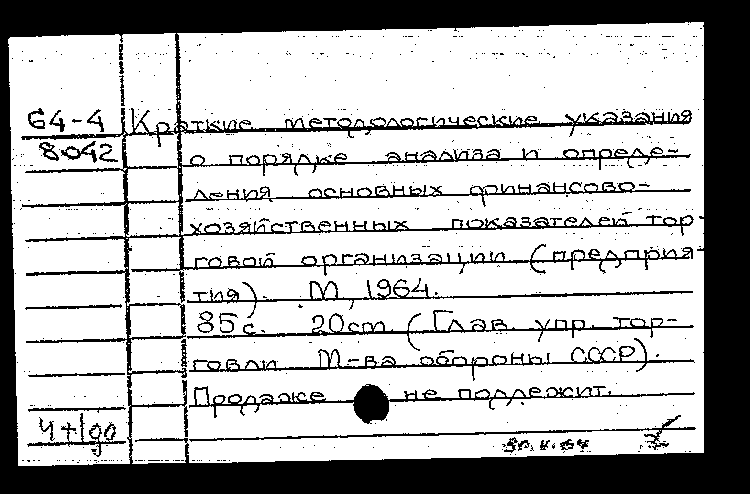 64-4 Краткие методологические указания
8042 о порядке анализа и опреде-
ления основных финансово-
хозяйственных показателей тор-
говой организации (предприя-
тия). М, 1964.
85с. 20cm (Глав. упр. тор-
говли М-ва обороны СССР).
Продаже не подлежит.